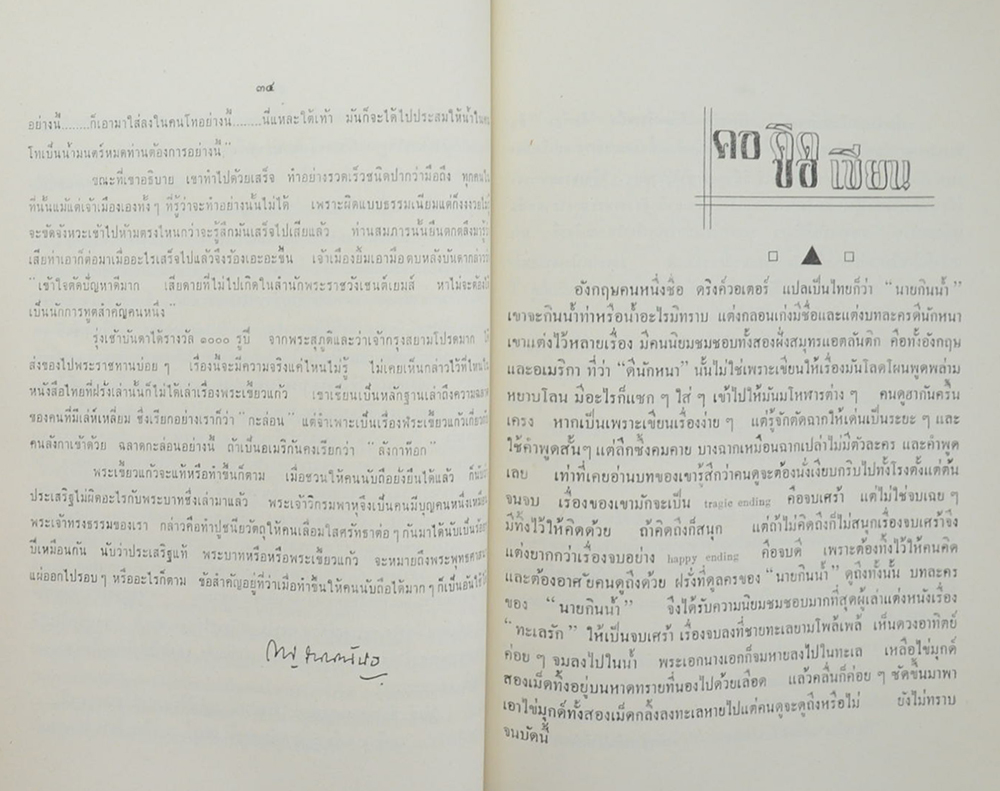 ๓๔
อย่างนี้........ก็เอามาใส่ลงในคนโทอย่างนี้........นี่แหละใต้เท้า มันก็จะได้ไปประสมให้น้ำใน
โทเป็นน้ำมนตร์หมดท่านต้องการอย่างนี้"
ขณะที่เขาอธิบาย เขาทำไปด้วยเสร็จ ทำอย่างรวดเร็วชนิดปากว่ามือถึง ทุกคน
ที่นั้นแม้แต่เจ้าเมืองเองทั้ง ๆ ที่รู้ว่าจะทำอย่างนั้นไม่ได้ เพราะผิดแบบธรรมเนียมแต่ก็งงงวย
จะขัดจังหวะเข้าไปห้ามตรงไหนกว่าจะรู้สึกมันเสร็จไปเสียแล้ว ท่านสมภารนั้นยืนตกตลึง
เสียท่าเอาก็ต่อมาเมื่ออะไรเสร็จไปแล้วจึงร้องเอะอะขึ้น เจ้าเมืองยิ้มเอามือตบหลังบันดากล่าวว่า
"เข้าใจตัดปัญหาดีมาก เสียดายที่ไม่ไปเกิดในสำนักพระราชวังเซนต์เยมส์ หาไม่จะต้อง
เป็นนักการทูตสำคัญคนหนึ่ง"
รุ่งเช้าบันดาได้รางวัล ๑๐๐๐ รูปี จากพระสุภูติและว่าเจ้ากรุงสยามโปรดมาก
ส่งของไปพระราชทานบ่อย ๆ เรื่องนี้จะมีความจริงแค่ไหนไม่รู้ ไม่เคยเห็นกล่าวไว้ที่ไหน
หนังสือไทยที่ฝรั่งเล่านั้นก็ไม่ได้เล่าเรื่องพระเขี้ยวแก้ว เขาเขียนเป็นหลักฐานเล่าถึงความฉลาด
ของคนที่มีเล่ห์เหลี่ยม ซึ่งเรียกอย่างเราก็ว่า "กะล่อน" แต่จำเพาะเป็นเรื่องพระเขี้ยวแก้วเกี่ยว
คนลังกาเข้าด้วย ฉลาดกะล่อนอย่างนี้ ถ้าเป็นอเมริกันคงเรียกว่า "ลังกาท๊อก"
พระเขี้ยวแก้วจะแท้หรือทำขึ้นก็ตาม เมื่อชวนให้คนนับถือยั่งยืนได้แล้ว
ประเสริฐไม่ผิดอะไรกับพระบาทซึ่งเล่ามาแล้ว พระเจ้าวิกรมพาหุจึงเป็นคนมีบุญคนหนึ่งเหมือน
พระเจ้าทรงธรรมของเรา กล่าวคือทำปูชนียวัตถุให้คนเลื่อมใสศรัทธาต่อ ๆ กันมาได้นับเป็น
ปีเหมือนกัน นับว่าประเสริฐแท้ พระบาทหรือหรือพระเขี้ยวแก้ว จะหมายถึงพระพุทธศาสนา
แผ่ออกไปรอบๆ หรืออะไรก็ตาม ข้อสำคัญอยู่ที่ว่าเมื่อทำขึ้นให้คนนับถือได้มาก ๆ ก็เป็นอันใช้
คอ คิด ขีด เขียน
อังกฤษคนหนึ่งชื่อ ดริงค์วอเตอร์ แปลเป็นไทยก็ว่า "นายกินน้ำ"
เขาจะกินน้ำท่าหรือน้ำอะไรมิทราบ แต่งกลอนเก่งมีชื่อและแต่งบทละครดีนักหนา
เขาแต่งไว้หลายเรื่อง มีคนนิยมชมชอบทั้งสองฝั่งสมุทรแอตลันติก คือทั้งอังกฤษ
และอเมริกา ที่ว่า "ดีนักหนา" นั้นไม่ใช่เพราะเขียนให้เรื่องมันโลดโผนพูดพล่าม
หยาบโลน มีอะไรก็แซก ๆ ใส่ ๆ เข้าไปให้มันมโหฬารต่าง ๆ คนดูฮากันครื้น
เครง หากเป็นเพราะเขียนเรื่องง่าย ๆ แต่รู้จักตัดฉากให้เด่นเป็นระยะ ๆ และ
ใช้คำพูดสั้นๆ แต่ลึกซึ้งคมคาย บางฉากเหมือนฉากเปล่าไม่มีตัวละคร และคำพูด
เลย เท่าที่เคยอ่านบทของเขารู้สึกว่าคนดูจะต้องนั่งเงียบกริบไปทั้งโรงตั้งแต่ต้น
จนจบ เรื่องของเขามักจะเป็น tragie ending คือจบเศร้า แต่ไม่ใช่จบเฉย ๆ
มีทิ้งไว้ให้คิดด้วย ถ้าคิดถึงก็สนุก แต่ถ้าไม่คิดถึงก็ไม่สนุกเรื่องจบเศร้าจึง
แต่งยากกว่าเรื่องจบอย่าง happy ending คือจบดี เพราะต้องทิ้งไว้ให้คนคิด
และต้องอาศัยคนดูถึงด้วย ฝรั่งที่ดูละครของ "นายกินน้ำ" ดูถึงทั้งนั้น บทละคร
ของ "นายกินน้ำ" จึงได้รับความนิยมชมชอบมากที่สุดผู้เล่าแต่งหนังเรื่อง
"ทะเลรัก" ให้เป็นจบเศร้า เรื่องจบลงที่ชายทะเลยามโพล้เพล้ เห็นดวงอาทิตย์
ค่อย ๆ จมลงไปในน้ำ พระเอกนางเอกก็จมหายลงไปในทะเล เหลือไข่มุกด์
สองเม็ดทิ้งอยู่บนหาดทรายที่นองไปด้วยเลือด แล้วคลื่นก็ค่อย ๆ ซัดขึ้นมาพา
เอาไข่มุกด์ทั้งสองเม็ดกลิ้งลงทะเลหายไปแต่คนดูจะดูถึงหรือไม่ ยังไม่ทราบ
จนบัดนี้